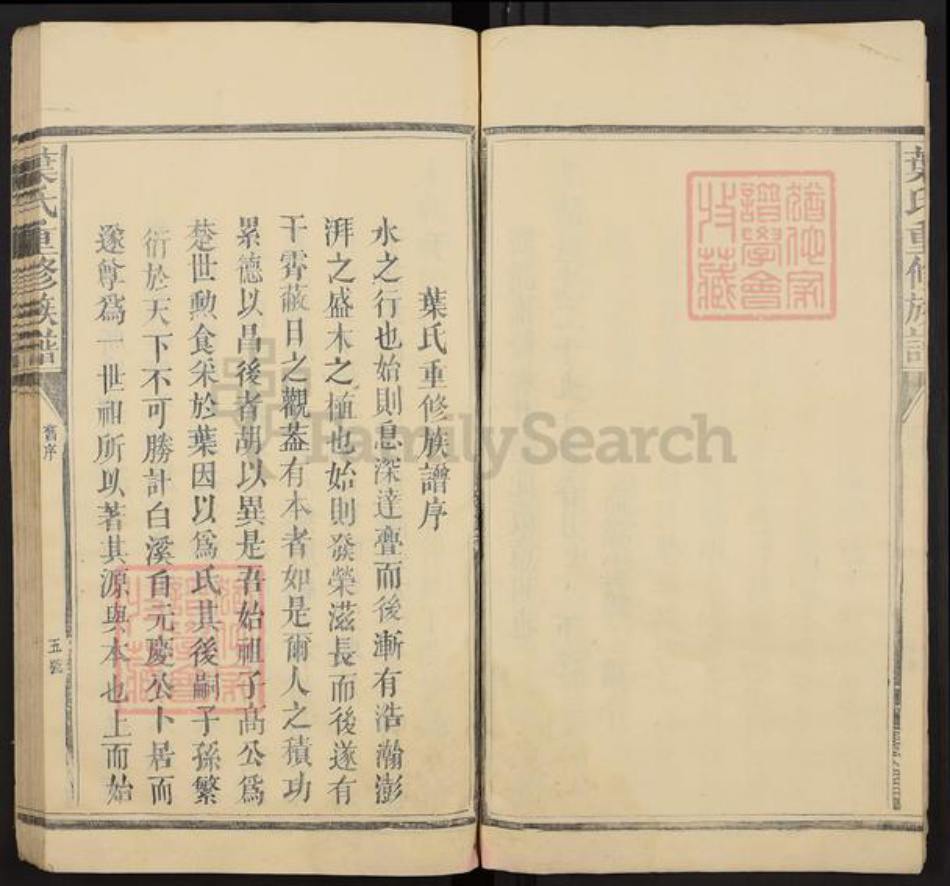 葉氏重修族譜
葉氏重修族譜序
水之行也始則息深達亹而後漸有浩瀚澎
湃之盛木之植也始則發榮滋長而後遂有
干霄蔽日之觀葢有本者如是爾人之積功
累德以昌後者胡以異是吾始祖子高公爲
楚世勲食采於葉因以爲氏其後嗣子孫繁
衍於天下不可勝計白溪自元慶公卜居而
遂尊爲一世祖所以著其源與本也上而始
葉氏重修族譜
舊序
五號
譜學會
收藏
譜學會
收藏
FamilySearch